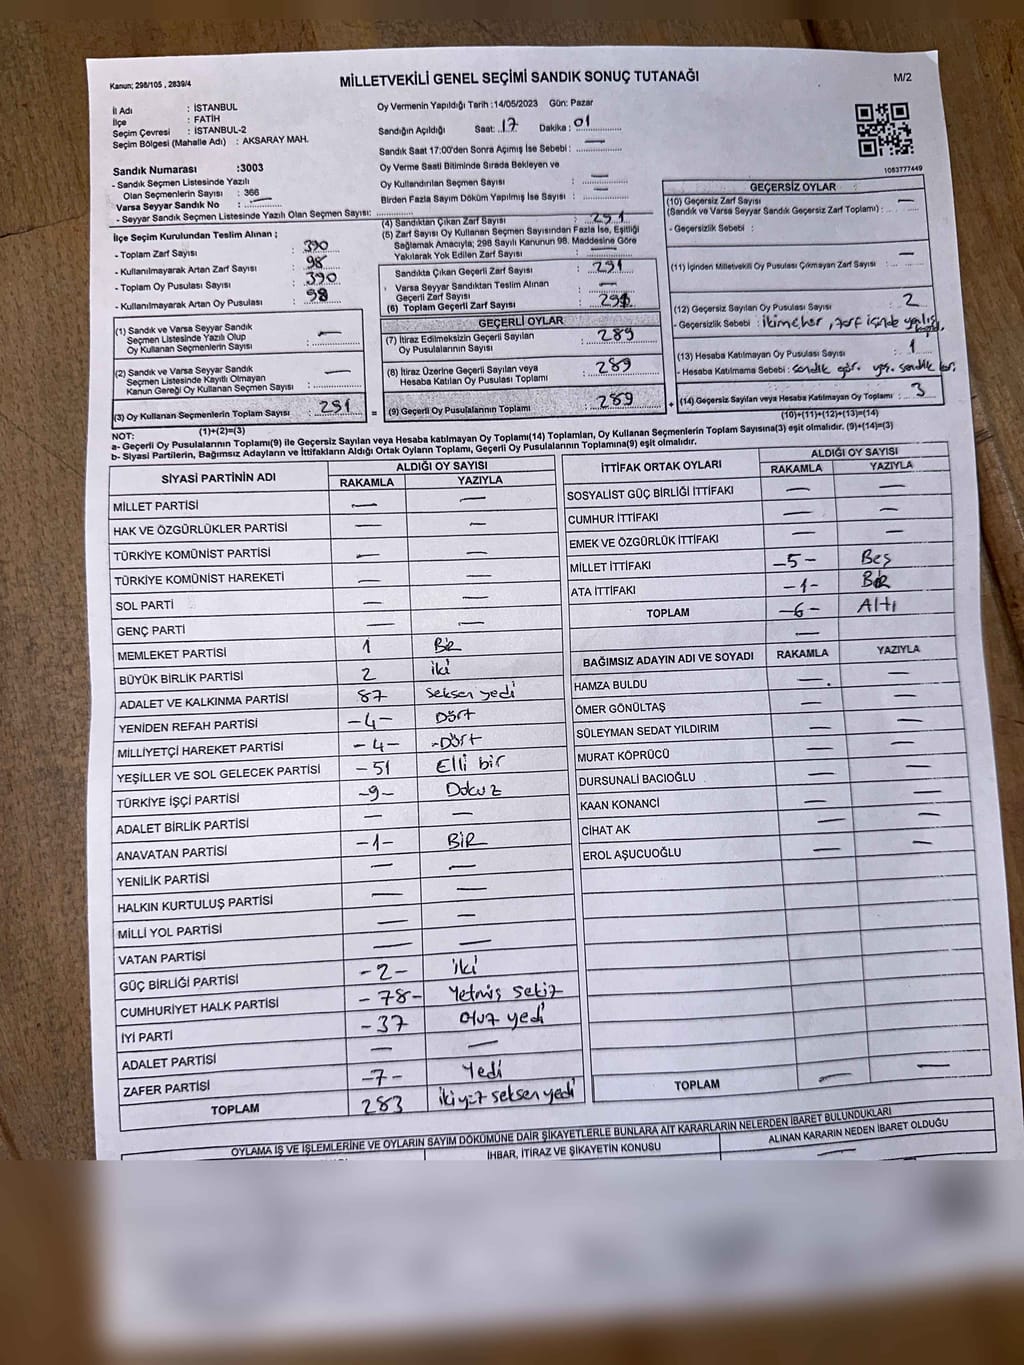 Kanun; 298/105 , 2839/4
MİLLETVEKİLİ GENEL SEÇİMİ SANDIK SONUÇ TUTANAĞI
M/2
İl Adı : İSTANBUL
İlçe : FATİH
Seçim Çevresi : İSTANBUL-2
Seçim Bölgesi (Mahalle Adı) : AKSARAY MAH.
Sandık Numarası :3003
- Sandık Seçmen Listesinde Yazılı
Olan Seçmenlerin Sayısı : 366
Varsa Seyyar Sandık No : —
- Seyyar Sandık Seçmen Listesinde Yazılı Olan Seçmen Sayısı:
Oy Vermenin Yapıldığı Tarih :14/05/2023 Gün: Pazar
Sandığın Açıldığı Saat: 17 Dakika : 01
Sandık Saat 17:00'den Sonra Açımış İse Sebebi : —
Oy Verme Saati Bitiminde Sırada Bekleyen ve
Oy Kullandırılan Seçmen Sayısı : —
Birden Fazla Sayım Döküm Yapılmış İse Sayısı : —
1063777449
İlçe Seçim Kurulundan Teslim Alınan ;
- Toplam Zarf Sayısı : 390
- Kullanılmayarak Artan Zarf Sayısı : 98
- Toplam Oy Pusulası Sayısı : 390
- Kullanılmayarak Artan Oy Pusulası : 98
(1) Sandık ve Varsa Seyyar Sandık
Seçmen Listesinde Yazılı Olup
Oy Kullanan Seçmenlerin Sayısı : —
(2) Sandık ve Varsa Seyyar Sandık
Seçmen Listesinde Kayıtlı Olmayan
Kanun Gereği Oy Kullanan Seçmen Sayısı : —
(3) Oy Kullanan Seçmenlerin Toplam Sayısı : 291
(1)+(2)=(3)
(4) Sandıktan Çıkan Zarf Sayısı : 291
(5) Zarf Sayısı Oy Kullanan Seçmen Sayısından Fazla İse, Eşitliği
Sağlamak Amacıyla; 298 Sayılı Kanunun 98. Maddesine Göre
Yakılarak Yok Edilen Zarf Sayısı : —
Sandıkta Çıkan Geçerli Zarf Sayısı : 291
Varsa Seyyar Sandıktan Teslim Alınan
Geçerli Zarf Sayısı : —
(6) Toplam Geçerli Zarf Sayısı : 291
GEÇERLİ OYLAR
(7) İtiraz Edilmeksizin Geçerli Sayılan
Oy Pusulalarının Sayısı : 289
(8) İtiraz Üzerine Geçerli Sayılan veya
Hesaba Katılan Oy Pusulası Toplamı : 289
= (9) Geçerli Oy Pusulalarının Toplamı : 289
GEÇERSİZ OYLAR
(10) Geçersiz Zarf Sayısı
(Sandık ve Varsa Seyyar Sandık Geçersiz Zarf Toplamı) : —
- Geçersizlik Sebebi :
(11) İçinden Milletvekili Oy Pusulası Çıkmayan Zarf Sayısı : —
(12) Geçersiz Sayılan Oy Pusulası Sayısı : 2
- Geçersizlik Sebebi : zarf içinde
(13) Hesaba Katılmayan Oy Pusulası Sayısı : 1
- Hesaba Katılmama Sebebi : sandık sandık
+ (14) Geçersiz Sayılan veya Hesaba Katılmayan Oy Toplamı : 3
(10)+(11)+(12)+(13)=(14)
NOT:
a- Geçerli Oy Pusulalarının Toplamı(9) ile Geçersiz Sayılan veya Hesaba katılmayan Oy Toplamı(14) Toplamları, Oy Kullanan Seçmenlerin Toplam Sayısına(3) eşit olmalıdır. (9)+(14)=(3)
b- Siyasi Partilerin, Bağımsız Adayların ve İttifakların Aldığı Ortak Oyların Toplamı, Geçerli Oy Pusulalarının Toplamına(9) eşit olmalıdır.
SİYASİ PARTİNİN ADI ALDIĞI OY SAYISI
RAKAMLA YAZIYLA
MİLLET PARTİSİ — —
HAK VE ÖZGÜRLÜKLER PARTİSİ — —
TÜRKİYE KOMÜNİST PARTİSİ — —
TÜRKİYE KOMÜNİST HAREKETİ — —
SOL PARTİ — —
GENÇ PARTİ — —
MEMLEKET PARTİSİ 1 Bir
BÜYÜK BİRLİK PARTİSİ 2 iki
ADALET VE KALKINMA PARTİSİ 87 seksen yedi
YENİDEN REFAH PARTİSİ -4- Dört
MİLLİYETÇİ HAREKET PARTİSİ -4- -Dört
YEŞİLLER VE SOL GELECEK PARTİSİ -51 Elli bir
TÜRKİYE İŞÇİ PARTİSİ -9- Dokuz
ADALET BİRLİK PARTİSİ — —
ANAVATAN PARTİSİ -1- BİR
YENİLİK PARTİSİ — —
HALKIN KURTULUŞ PARTİSİ — —
MİLLİ YOL PARTİSİ — —
VATAN PARTİSİ — —
GÜÇ BİRLİĞİ PARTİSİ -2- iki
CUMHURİYET HALK PARTİSİ -78- Yetmiş sekiz
İYİ PARTİ -37 Otuz yedi
ADALET PARTİSİ — —
ZAFER PARTİSİ -7- Yedi
TOPLAM 283 ikiyüz seksen yedi
İTTİFAK ORTAK OYLARI ALDIĞI OY SAYISI
RAKAMLA YAZIYLA
SOSYALİST GÜÇ BİRLİĞİ İTTİFAKI — —
CUMHUR İTTİFAKI — —
EMEK VE ÖZGÜRLÜK İTTİFAKI — —
MİLLET İTTİFAKI -5- Beş
ATA İTTİFAKI -1- Bir
TOPLAM -6- Altı
—
BAĞIMSIZ ADAYIN ADI VE SOYADI RAKAMLA YAZIYLA
HAMZA BULDU — —
ÖMER GÖNÜLTAŞ — —
SÜLEYMAN SEDAT YILDIRIM — —
MURAT KÖPRÜCÜ — —
DURSUNALİ BACIOĞLU — —
KAAN KONANCİ — —
CİHAT AK — —
EROL AŞUCUOĞLU — —
TOPLAM — —
OYLAMA İŞ VE İŞLEMLERİNE VE OYLARIN SAYIM DÖKÜMÜNE DAİR ŞİKAYETLERLE BUNLARA AİT KARARLARIN NELERDEN İBARET BULUNDUKLARI
İHBAR, İTİRAZ VE ŞİKAYETİN KONUSU
ALINAN KARARIN NEDEN İBARET OLDUĞU